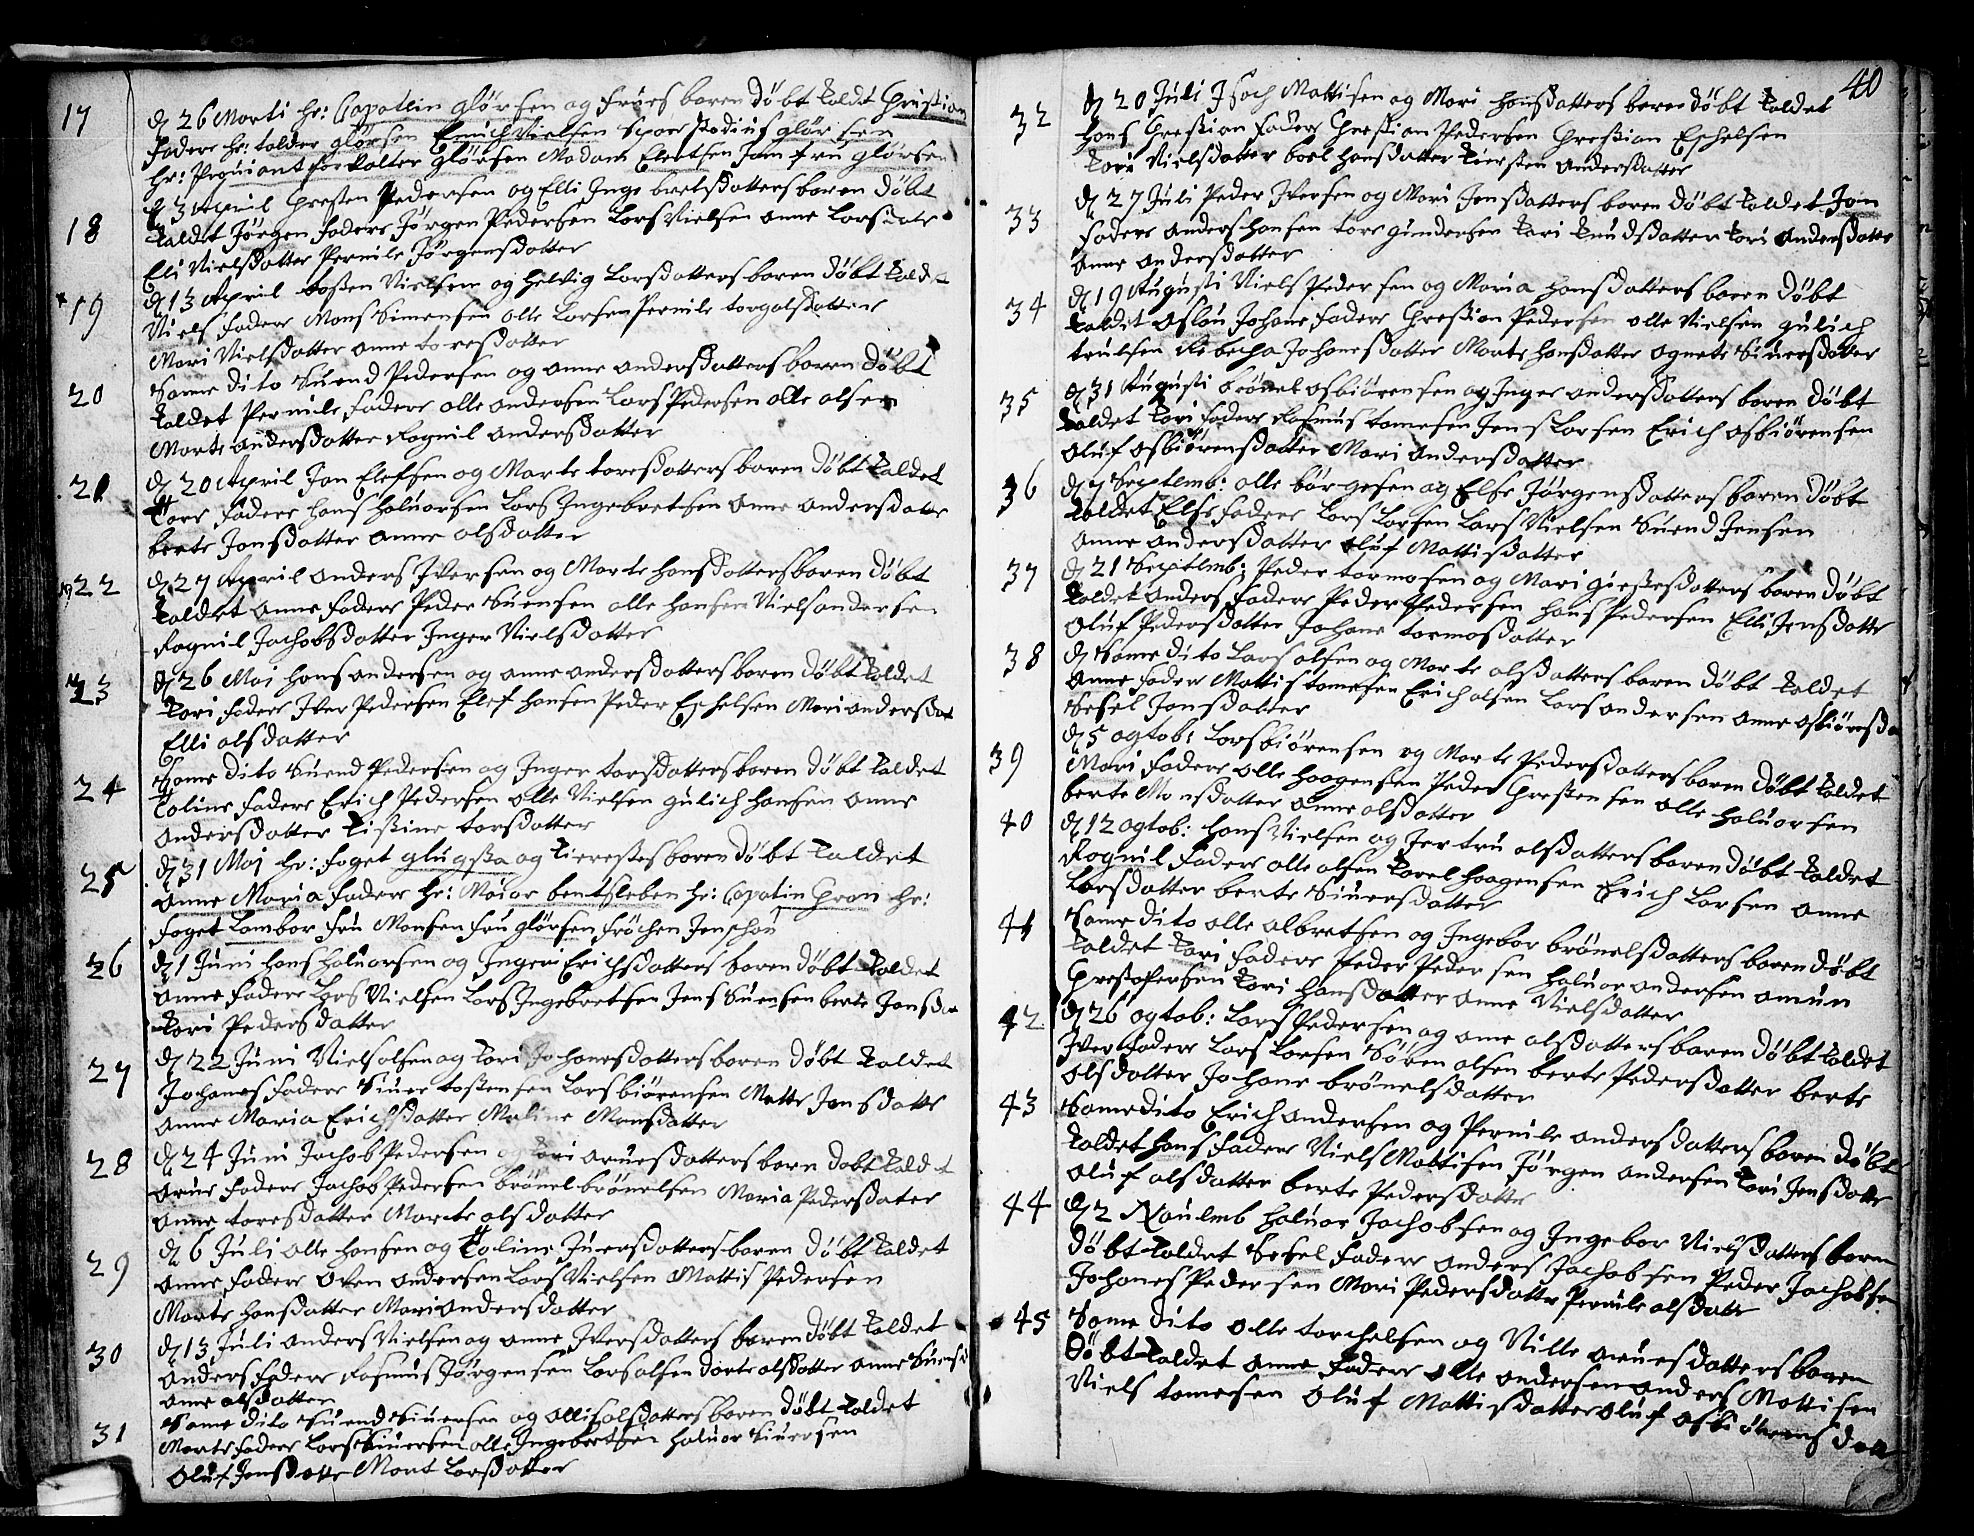 17
d 26 Marti hr: Capatlin glörsen og Frües baren döbt kaldet Christian
fadere hr: tolder glörsen Erich Nielsen
hr: Prouiantforvalter glörsen Madam Elertsen Jomfru glörsen
18
d 3 April Chresten Pedersen og Elli Ingebretsdatters baren döbt
kaldet Jörgen fadere Jörgen Pedersen Lars Nielsen Anne Larsdate
Eli Nielsdatter Pernile Jörgensdatter
19
d 13 April tosten Nielsen og helvig Larsdatters baren döbt kaldet
Niels fadere Mons Simensen olle Larsen Pernile torgalsdatter
Mari Nielsdatter anne toresdatter
20
Same dito Suend Pedersen og anne andersdatters baren döbt
kaldet Pernile fadere olle andersen Lars Pedersen olle olsen
Marte andersdatter Rognil andersdatter
21
d 20 April Jon Elefsen og Marte toresdatters baren döbt kaldet
tore fadere hans haluorsen Lars Ingebretsen anne andersdatte
berte Jonsdatter anne olsdatter
22
d 27 April anders Iversen og Marte hansdatters baren döbt
kaldet anne fadere Peder Suensen olle hansen Niels andersen
Rognil Jachobsdatter Inger Nielsdatter
23
d 26 Mai hans andersen og anne andersdatters baren döbt kaldet
kari fadere Iver Pedersen Elef hansen Peder Eschelsen Mari andersdat
Elli olsdatter
24
Same dito Suend Pedersen og Inger torsdatters baren döbt kaldet
toline fadere Erich Pedersen olle Nielsen gulich hansen anne
andersdatter kistine torsdatter
25
d 31 Maj hr: foget glugsta og kierestes baren döbt kaldet
anne Maria fadere hr: Maior bentsleben hr: Capatin Gran hr:
foget Lambor fru Monsen fru glörsen fröchen Jenschou
26
d 1 Juni hans haluorsen og Inger Erichsdatters baren döbt kaldet
anne fadere Lars Nielsen Lars Ingebretsen Jens Suensen berte Jonsda
kari Pedersdatter
27
d 22 Juni Niels olsen og kari Johanesdatters baren döbt kaldet
Johanes fadere Siuer tostensen Lars biörensen Matte Jonsdatte
anne Maria Erichsdatter Maline Monsdatter
28
d 24 Juni Jachob Pedersen og kari aruesdatters barn döbt kaldet
arue fadere Jachob Pedersen brönel brönelsen Maria Pedersdater
anne toresdatter Marte olsdatter
29
d 6 Juli olle hansen og toline Iuersdatters baren döbt kaldet
anne fadere oven andersen Lars Nielsen Mattis Pedersen
Marte hansdatter Mari andersdatter
30
d 13 Juli anders Nielsen og anne Iversdatters baren döbt kaldet
anders fadere Rasmus Jörgensen Lars olsen dorte olsdatter anne Suensd
anne olsdatter
31
Same dito Suend Siuersen og allis olsdatters baren döbt kaldet
Marte fadere Lars Siuersen olle Ingebretsen haluor Siuersen
oluf Jensdatte Marit Larsdatter
40
32
d 20 Juli Isach Mattisen og Mari hansdatters baren döbt kaldet
hans Chrestian fadere Chrestian Pedersen Chrestian Eschelsen
kari Nielsdatter boel hansdatter kiersten andersdatter
33
d 27 Juli Peder Iversen og Mari Jonsdatters baren döbt kaldet Jon
fadere anders hansen tore gundersen kari knudsdatter kari andersdatte
anne andersdatter
34
d 19 Augusti Niels Pedersen og Maria hansdatters baren döbt
kaldet Aslou Johane fadere Chrestian Pedersen olle Nielsen gulich
trulsen Rebecha Johanesdatter Marte hansdatter agnete Siuersdatter
35
d 31 Augusti brönel asbiörensen og Inger andersdatters baren döbt
kaldet kari fadere Rasmus tomesen Jens Larsen Erich asbiörensen
oluf asbiörensdatter Mari andersdatter
36
d 7 Septemb: olle börgesen og Else Jörgensdatters baren döbt
kaldet Else fadere Lars Larsen Lars Nielsen Suend Jensen
anne andersdatter oluf Mattisdatter
37
d 21 Septemb: Peder tormosen og Mari giestesdatters baren döbt
kaldet anders fadere Peder Pedersen hans Pedersen Elli Jensdatte
oluf Pedersdatter Johane tormosdatter
38
d Same dito Lars olsen og Marte olsdatters baren döbt kaldet
anne fadere Mattis tomesen Erich olsen Lars andersen anne asbiörensda
Sesel Jonsdatter
39
d 5 ogtob: Lars biörensen og Marte Pedersdatters baren döbt kaldet
Mari fadere olle haagensen Peder Chrestensen olle haluorsen
berte Monsdatter anne olsdatter
40
d 12 ogtob: hans Nielsen og Jertru olsdatters baren döbt kaldet
Rognil fadere olle olsen karel haagensen Erich Larsen anne
Larsdatter berte Siuersdatter
41
Same dito olle albretsen og Ingebor brönelsdatters baren döbt
kaldet kari fadere Peder Pedersen haluor andersen amun
Chrestofersen kari hansdatter anne Nielsdatter
42
d 26 ogtob: Lars Pedersen og anne olsdatters baren döbt kaldet
Iver fadere Lars Larsen Sören olsen berte Pedersdatter berte
olsdatter Johane brönelsdatter
43
Same dito Erich andersen og Pernile andersdatters baren döbt
kaldet hans fadere Niels Mattisen Jörgen andersen kari Jensdatte
oluf olsdatter berte Pedersdatte
44
d 2 Nouemb haluor Jachobsen og Ingebor Nielsdatters baren
döbt kaldet Sesel fadere anders Jachobsen Peder Jachobsen
Johanes Pedersen Mari Pedersdatte Pernile olsdatte
45
Same dito olle torchelsen og Nille aruesdatters baren
döbt kaldet anne fadere olle andersen anders Mattisen
Niels tomesen oluf Mattisdatter oluf asbiörensdatt